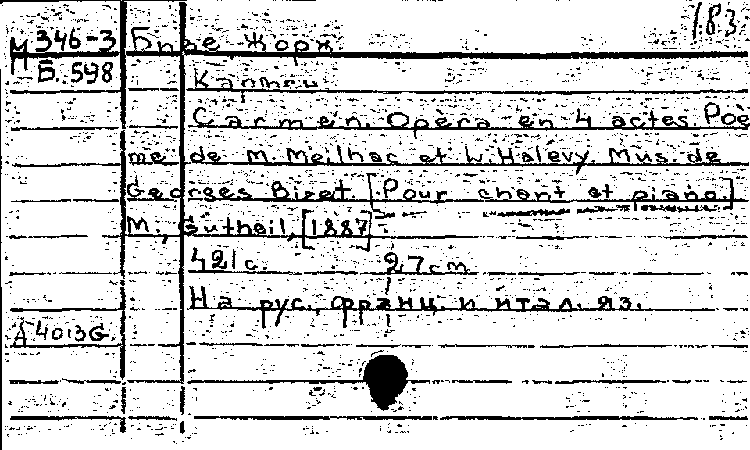 183
М 346-3 Бизе, Жорж.
Б. 598
Кармен.
Carmen. Opéra en 4 actes. Poè
me de M. Meilhac et L. Halévy. Mus. de
Georges Bizet. [Pour chant et piano.]
M., Gutheil, [1887]
421с. 27cm
На рус., франц. и итал. яз.
А 4013G